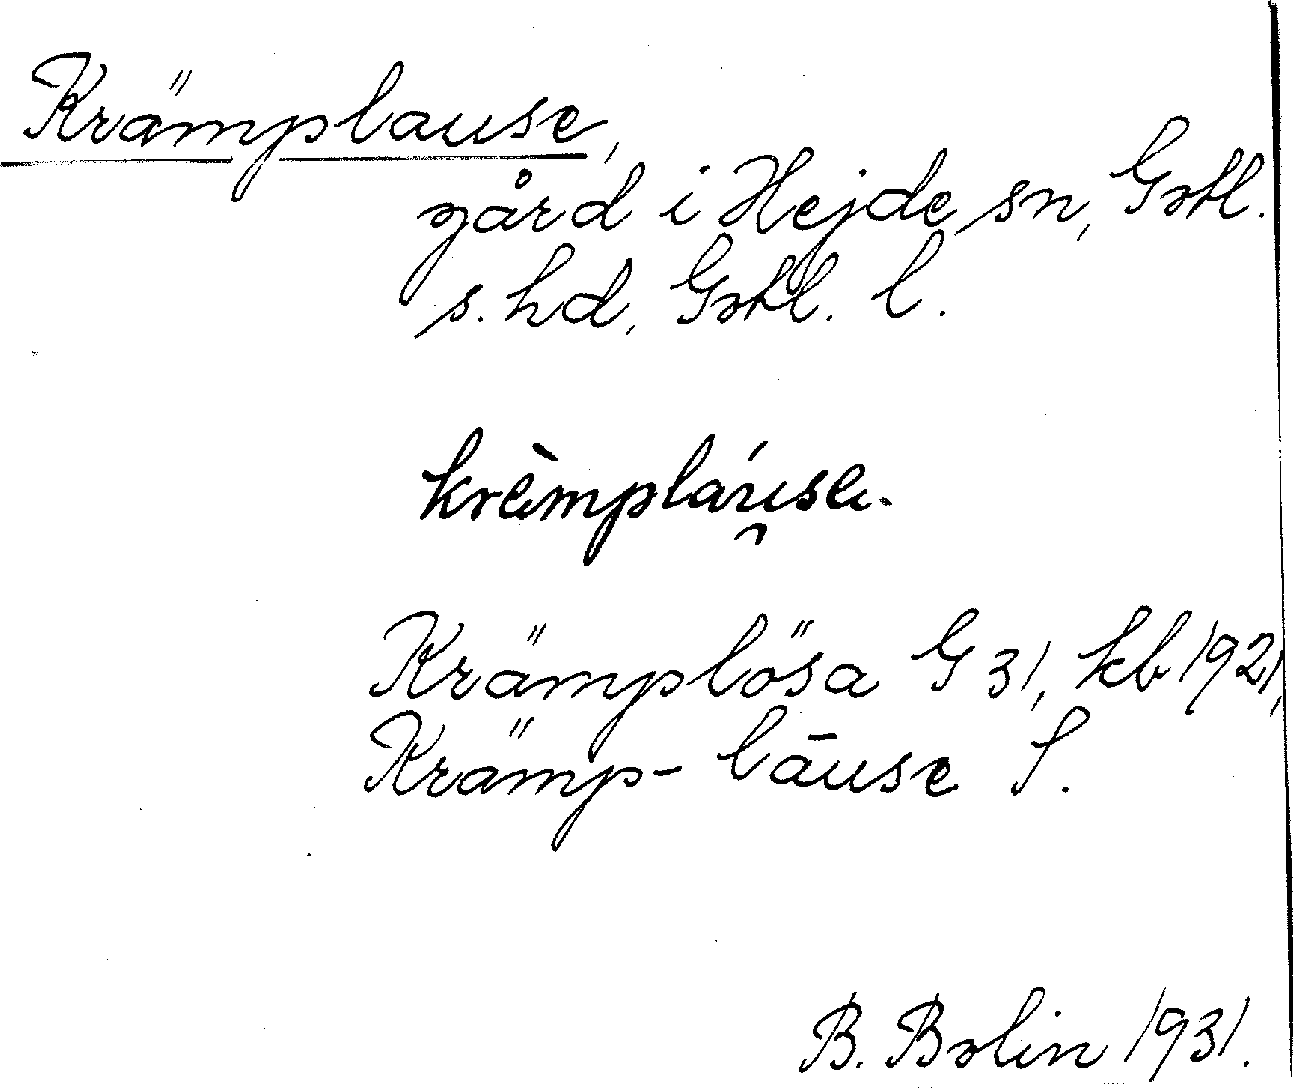 Krämplause,
gård i Hejde sn, Gotl.
s. hd, Gotl. l.
krèmpláu̯sa.
Krämplösa G 31, kb 1921,
Krämp-lāuse S.
B. Bolin 1931.